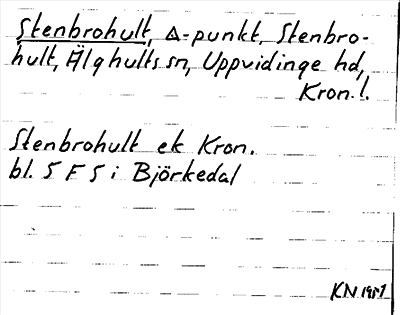 Stenbrohult, Δ-punkt, Stenbro-
hult, Älghults sn, Uppvidinge hd,
Kron. l.
Stenbrohult ek Kron.
bl. 5 F 5 i Björkedal
KN